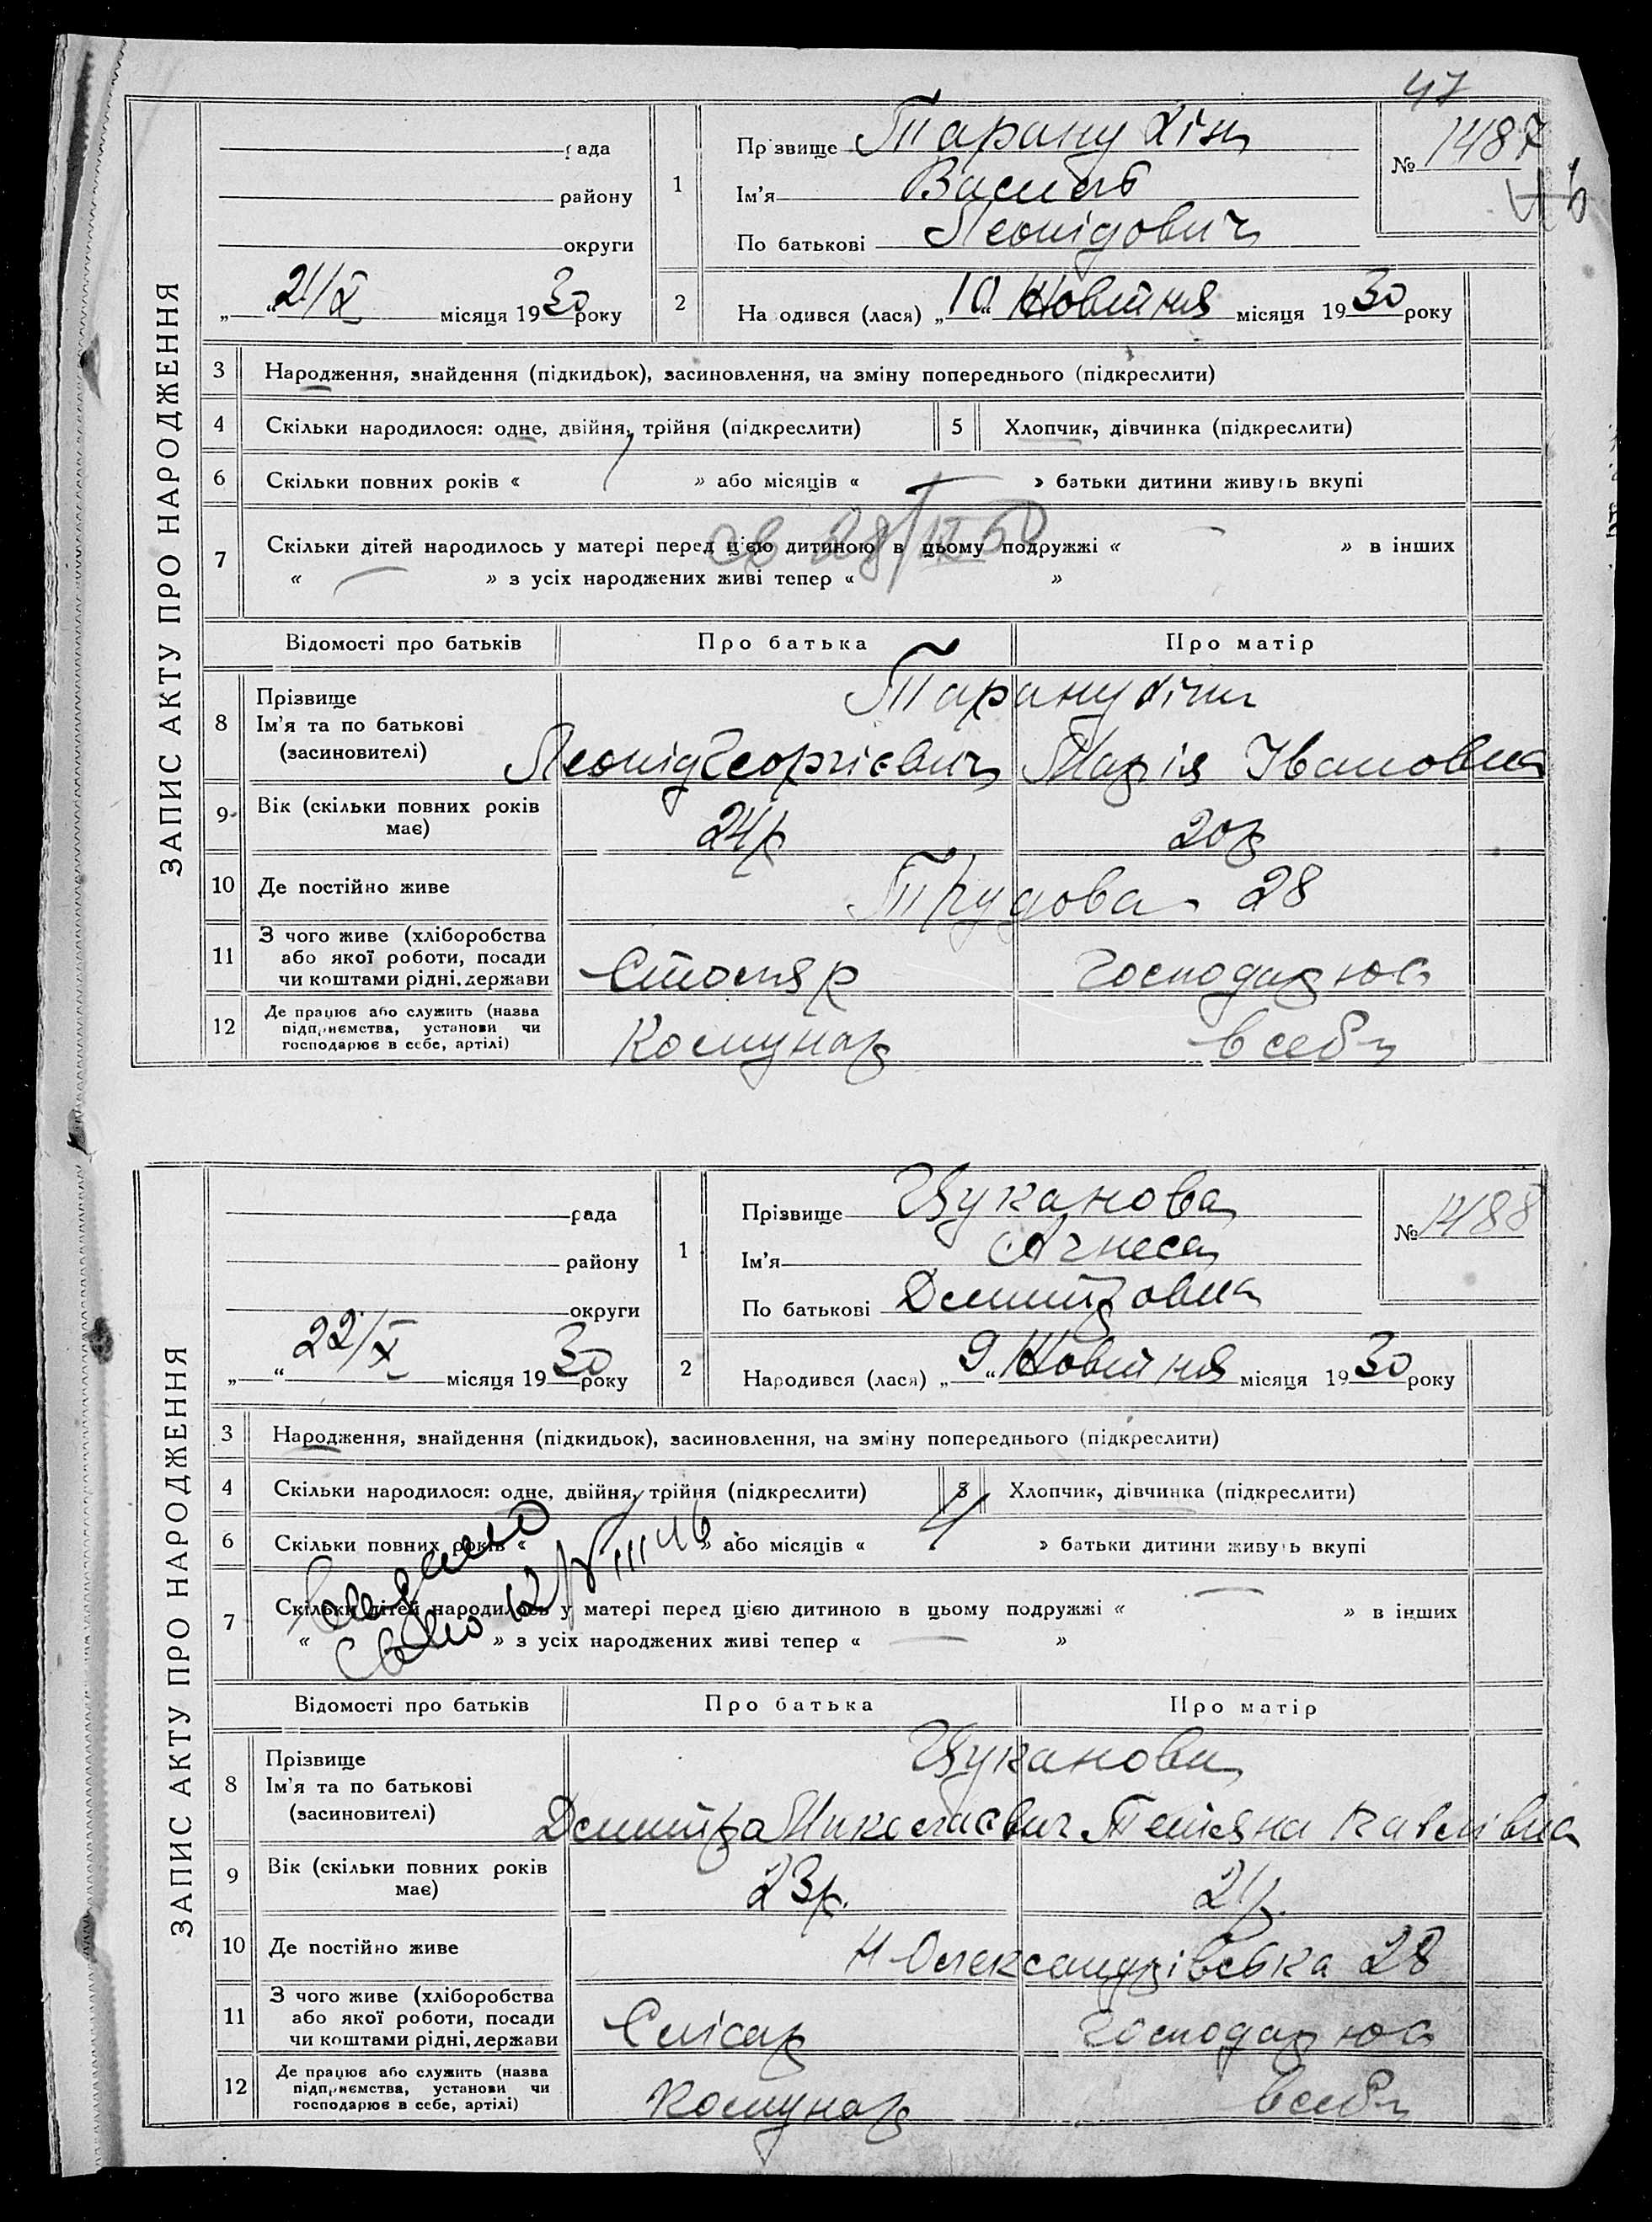 47
ЗАПИС АКТУ ПРО НАРОДЖЕННЯ
рада
району
округи
„ “ 21/X місяця 1930 року
1
Прізвище Таранухін
Ім'я Василь
По батькові Леонідович
№ 1487
2
Народився (лася) „10“ Жовтня місяця 1930 року
3 Народження, знайдення (підкидьок), засиновлення, на зміну попереднього (підкреслити)
4 Скільки народилося: одне, двійня, трійня (підкреслити) 5 Хлопчик, дівчинка (підкреслити)
6 Скільки повних років « » або місяців « » батьки дитини живуть вкупі
7 Скільки дітей народилось у матері перед цією дитиною в цьому подружжі « » в інших
« » з усіх народжених живі тепер « »
Відомості про батьків Про батька Про матір
8 Прізвище
Ім'я та по батькові
(засиновителі)
Таранухіни
Леонід Георгієвич Марія Івановна
9 Вік (скільки повних років має) 24р 20р
10 Де постійно живе Трудова 28
11 З чого живе (хліборобства або якої роботи, посади чи коштами рідні, держави Столяр господарює
12 Де працює або служить (назва підприємства, установи чи господарює в себе, артілі) Комунар в себе
ЗАПИС АКТУ ПРО НАРОДЖЕННЯ
рада
району
округи
„ “ 22/X місяця 1930 року
1
Прізвище Цуканова
Ім'я Агнеса
По батькові Дмитровна
№ 1488
2
Народився (лася) „9“ Жовтня місяця 1930 року
3 Народження, знайдення (підкидьок), засиновлення, на зміну попереднього (підкреслити)
4 Скільки народилося: одне, двійня, трійня (підкреслити) 5 Хлопчик, дівчинка (підкреслити)
6 Скільки повних років « » або місяців « » батьки дитини живуть вкупі
7 Скільки дітей народилось у матері перед цією дитиною в цьому подружжі « » в інших
« » з усіх народжених живі тепер « »
Відомості про батьків Про батька Про матір
8 Прізвище
Ім'я та по батькові
(засиновителі)
Цуканови
Дмитро Миколаєвич Тетяна Павлівна
9 Вік (скільки повних років має) 23р. 21р.
10 Де постійно живе Н-Олександрівська 28
11 З чого живе (хліборобства або якої роботи, посади чи коштами рідні, держави Слісар господарює
12 Де працює або служить (назва підприємства, установи чи господарює в себе, артілі) Комунар в себе